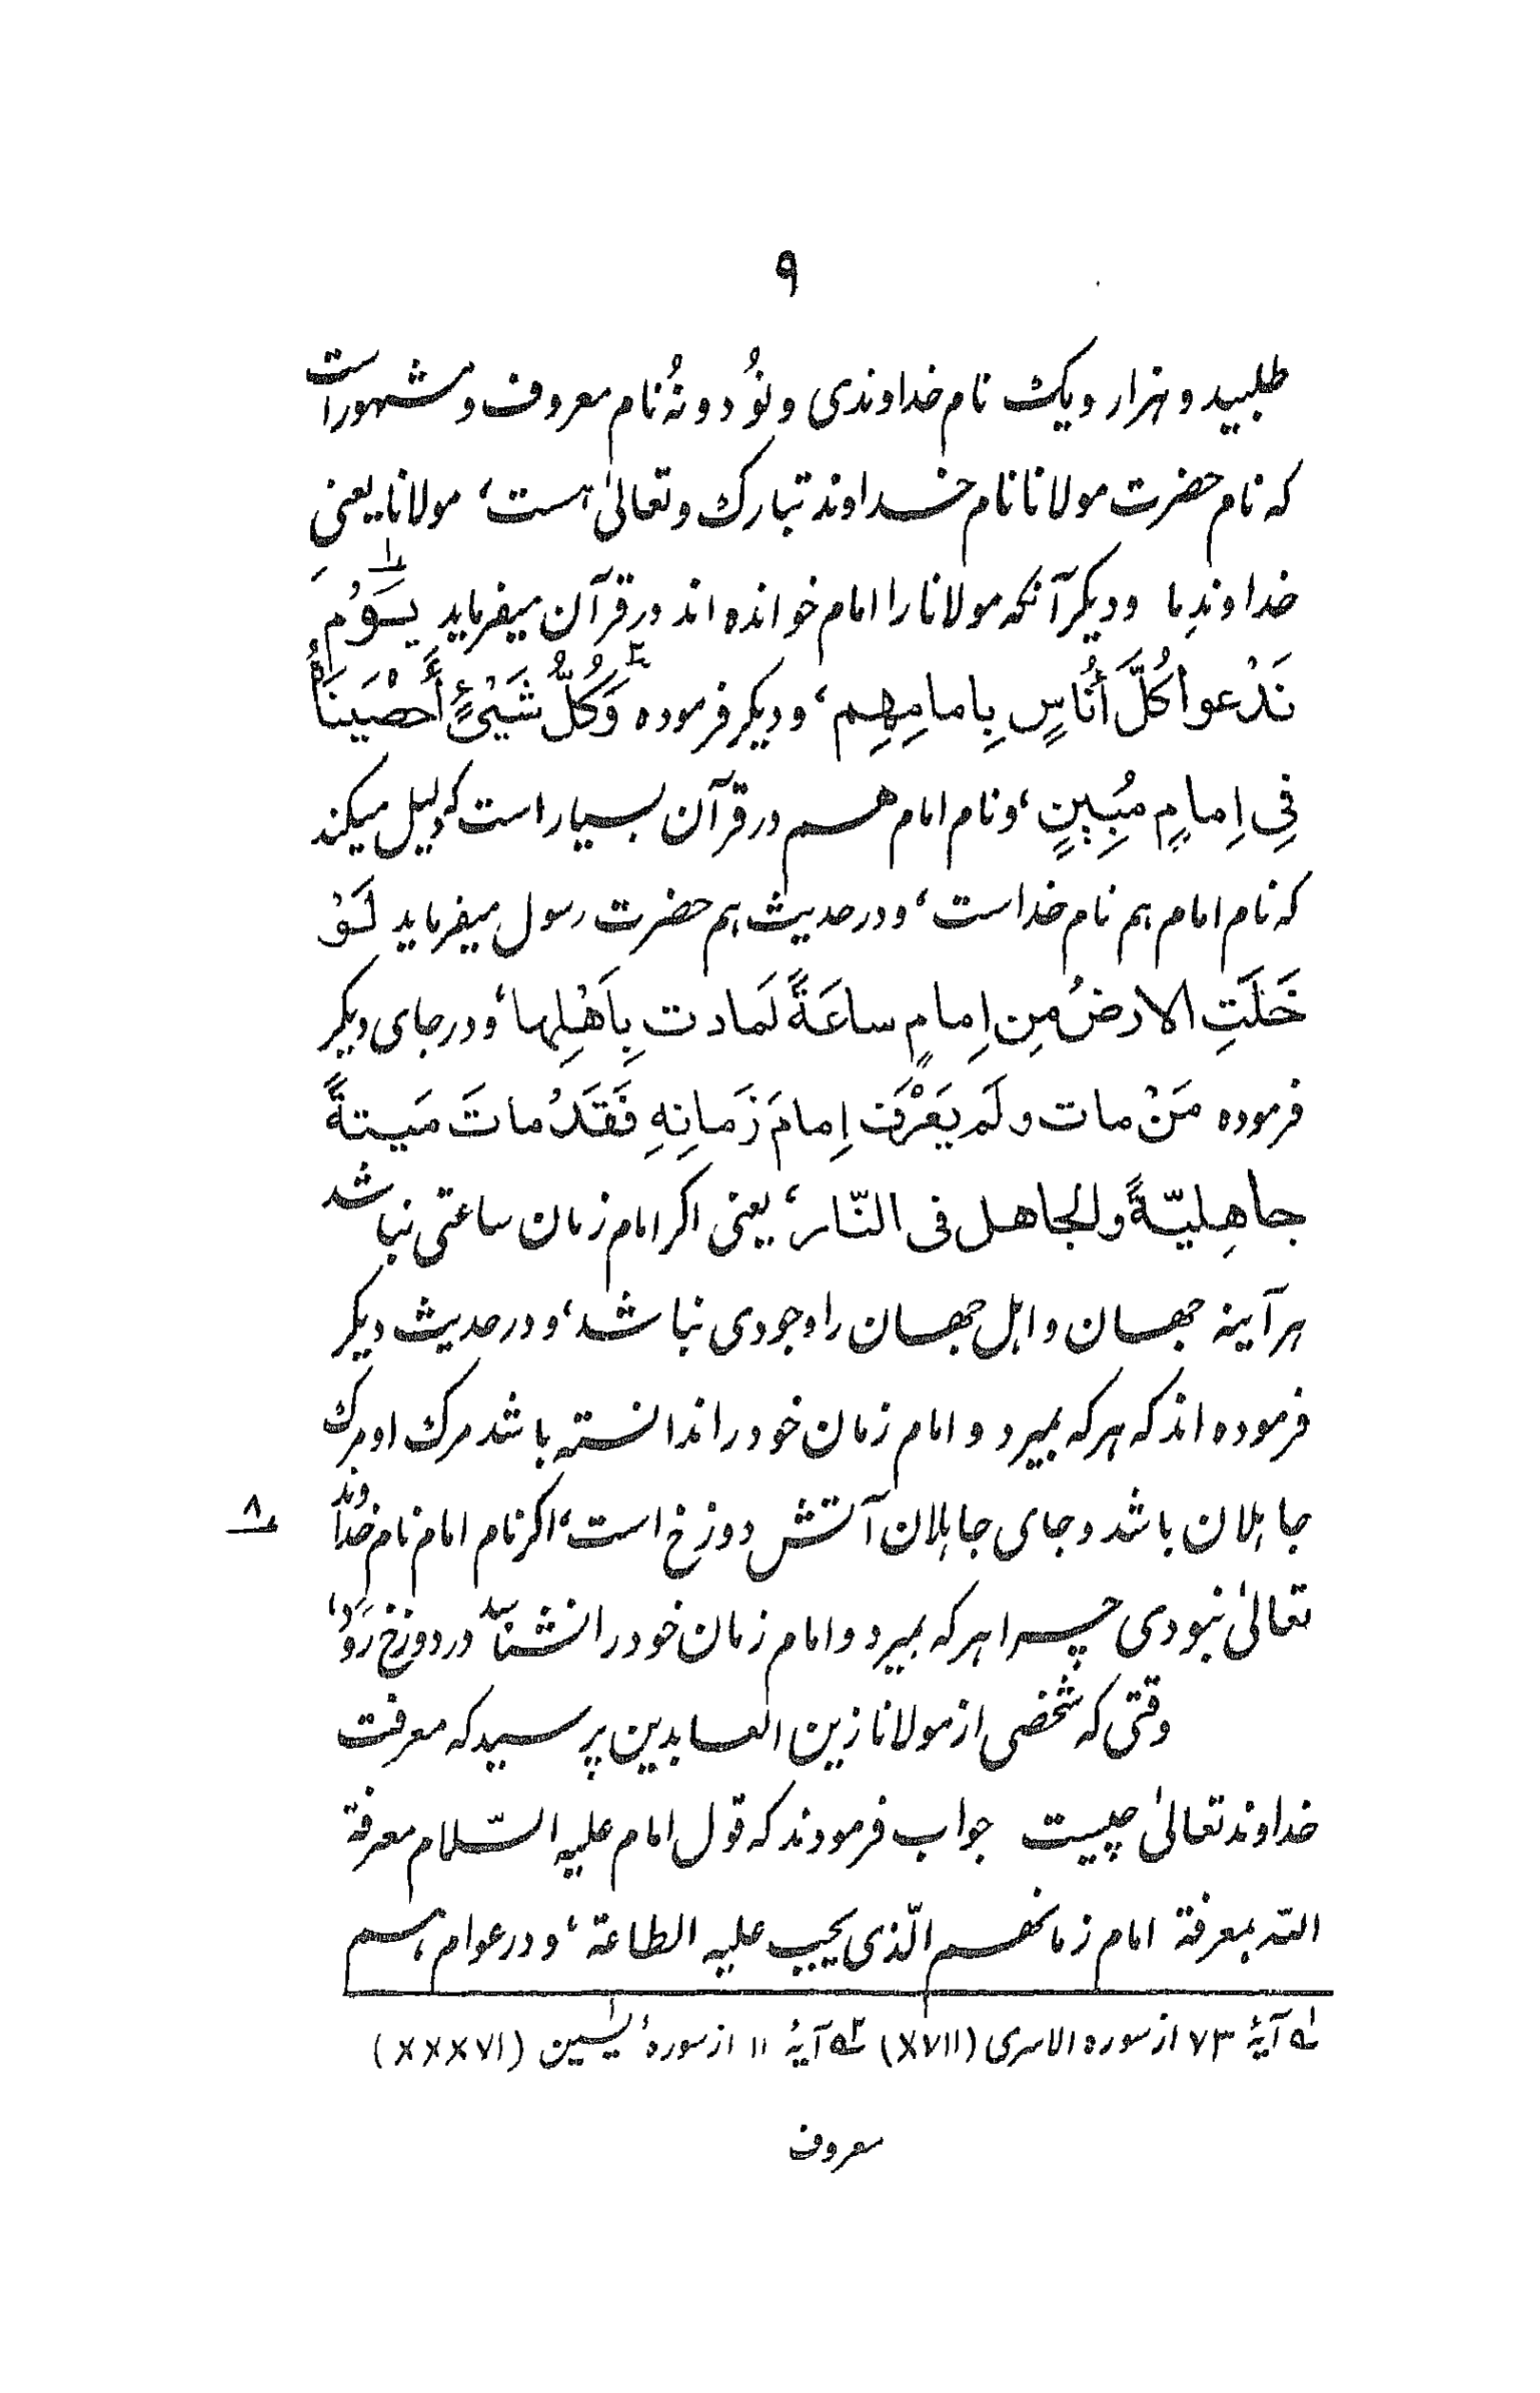 ۹
طلبید و هزار و یک نام خداوندی و نَوُد و نُه نام معروف و مشهور است
که نام حضرت مولانا نام خداوند تبارک و تعالیٰ هست، مولانا یعنی
خداوندِ ما و دیکر آنکه مولانا را امام خوانده اند در قرآن میفرماید یَوْمَ ۱
نَدْعوا کُلَّ أُنَاسٍ بِامامِهِم، و دیکر فرموده ۲ وَکُلُّ شَیْئٍ أَحْصَینَاُه
فِی اِمامٍ مُبِینٍ، و نام امام هم در قرآن بسیار است که دلیل میکند
که نام امام هم نام خداست، و در حدیث هم حضرت رسول میفرماید لَوْ
خَلَتِ الارضُ مِن اِمامٍ ساعَةً لَمادت بِاَهْلِها، و در جای دیکر
فرموده مَنْ مات و لَم یَعْرَف اِمامَ زَمانِهِ فَقَدْ ماتَ مَیتةً
جاهِلیّةً والجاهل فی النّار، یعنی اکر امام زمان ساعتی نباشد
هر آینه جهان و اهل جهان را وجودی نباشد، و در حدیث دیکر
فرموده اند که هرکه بمیرد و امام زمان خود را ندانسته باشد مرک او مرک
جاهلان باشد و جای جاهلان آتش دوزخ است، اکر نام امام نام خداوند
۸
تعالیٰ نبودی چرا هر که بمیرد و امام زمان خود را نشناسد در دوزخ رَوَد،
وقتی که شخصی از مولانا زین العابدین پرسید که معرفت
خداوند تعالیٰ چیست جواب فرمودند که قول امام علیه السّلام معرفة
الله بمعرفة امام زمانهم الّذی یجب علیه الطاعة، و در عوام هم
۱ آیهٔ ۷۳ از سوره الاسری (XVII) ۲ آیهٔ ۱۱ از سورهٔ یٰسین (XXXVI)
معروف